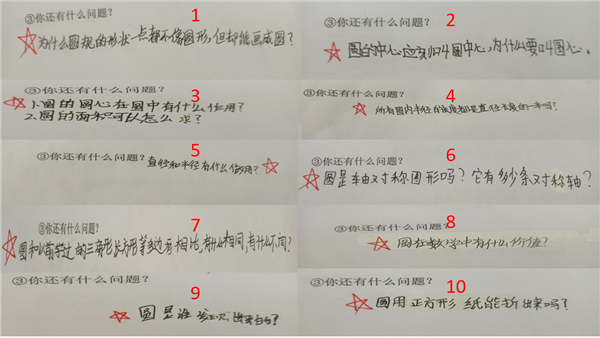 ③你还有什么问题? 1
为什么圆规的形状一点都不像圆形,但却能画成圆?
③你还有什么问题? 2
圆的中心应该叫圆中心,为什么要叫圆心。
③你还有什么问题? 3
1.圆的圆心在圆中有什么作用?
2.圆的面积可以怎么求?
③你还有什么问题? 4
所有圆内半径的长度都是直径长度的一半吗?
③你还有什么问题? 5
直径和半径有什么作用?
③你还有什么问题? 6
圆是轴对称图形吗?它有多少条对称轴?
③你还有什么问题? 7
圆和以前学过的三角形长方形等多边形相比,有什么相同,有什么不同?
③你还有什么问题? 8
圆在数学中有什么价值?
③你还有什么问题? 9
圆是谁 出来的?
③你还有什么问题? 10
圆用正方形纸能折出来吗?